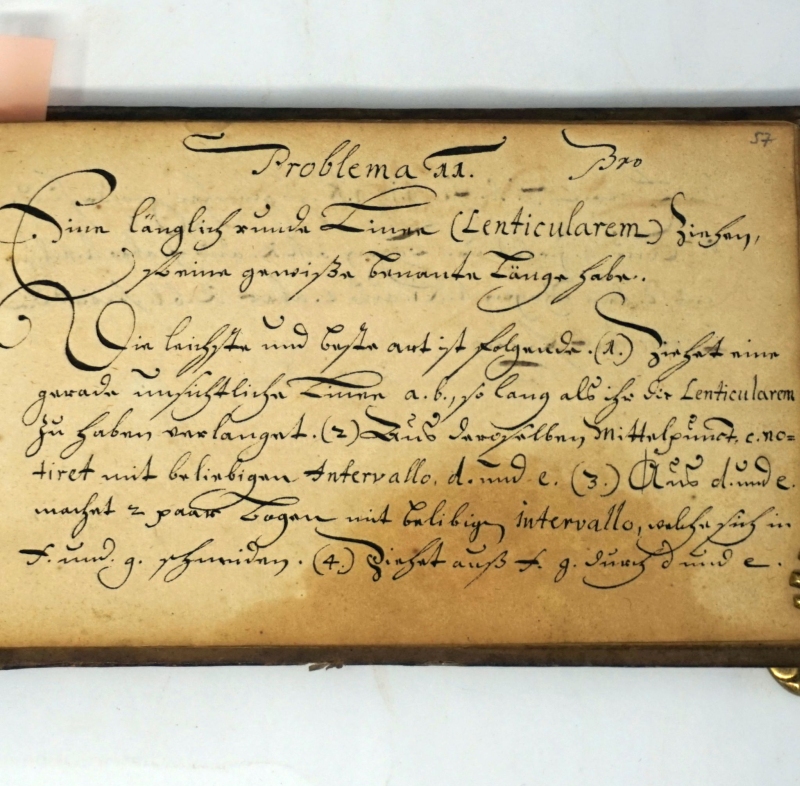 57
Problema 11. Bro
Eine länglich runde Linee (Lenticularem) Ziehen,
so eine gewiße benante Länge habe.
Die leichste und beste art ist folgende. (1.) Ziehet eine
gerade unsichtliche Linee a. b., so lang als ihr die Lenticularem
zu haben verlanget. (2) Aus deroselben Mittelpunct. c. no=
tiret mit beliebigen Intervallo. d. und e. (3.) Aus d. und e.
machet 2 paar bogen mit belibigen intervallo, welche sich in
f. und. g. schneiden. (4.) Ziehet auß f. g. durch d und e.